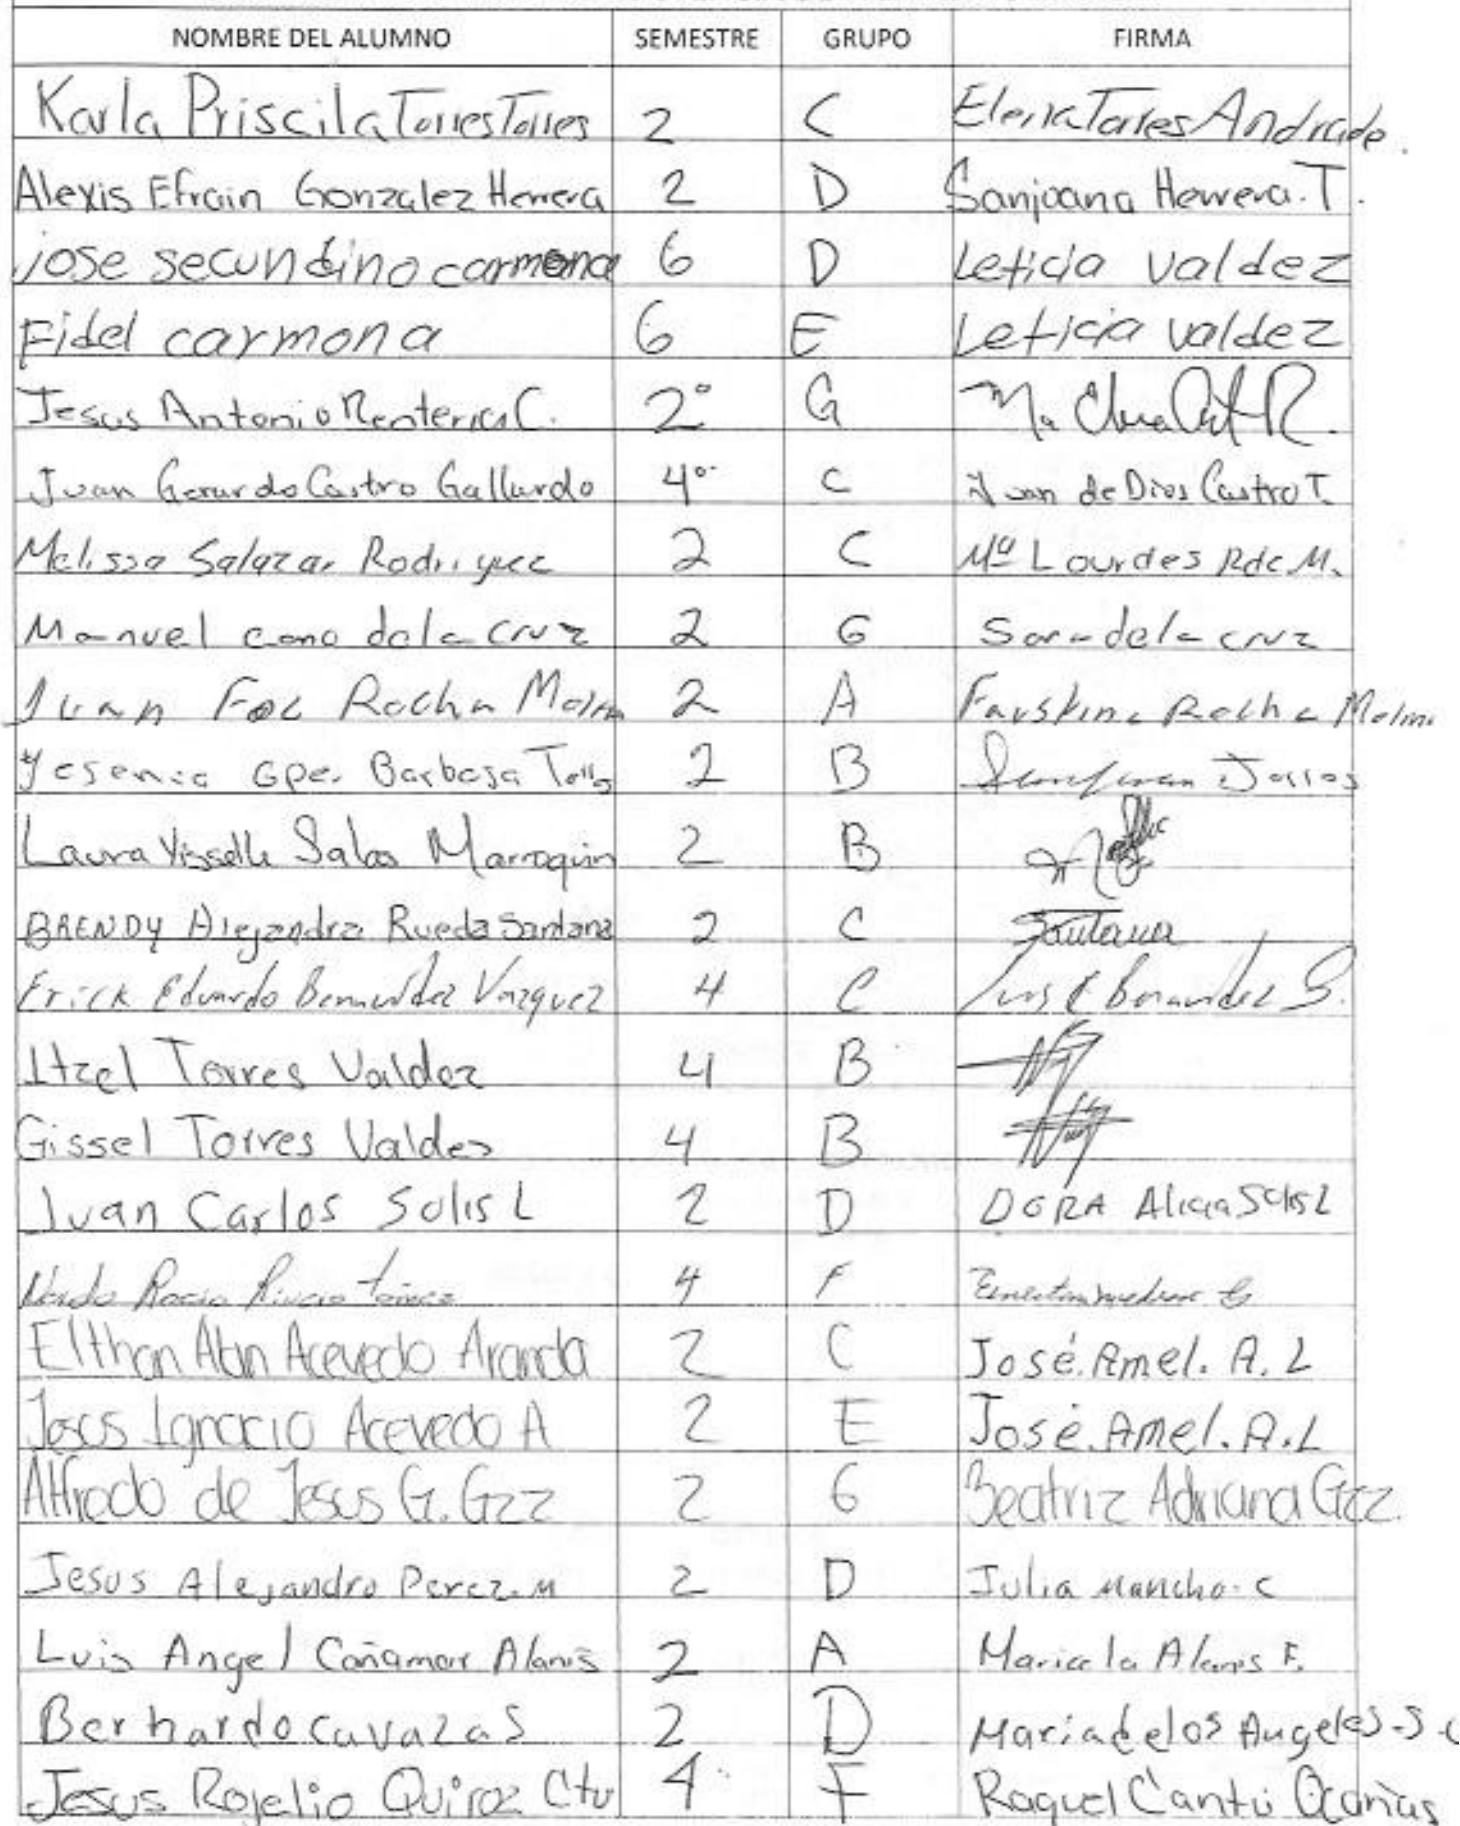 NOMBRE DEL ALUMNO SEMESTRE GRUPO FIRMA
Karla Priscila Torres Torres 2 C Elena Torres Andrade.
Alexis Efrain Gonzalez Herrera 2 D Sanjoana Herrera.T.
jose secundino carmona 6 D Leticia valdez
Fidel carmona 6 E Leticia valdez
Jesus Antonio Renteria C. 2° G Ma
Juan Gerardo Castro Gallardo 4° C Juan de Dios Castro T.
Melissa Salazar Rodriguez 2 C Mª Lourdes Rdz M.
Manuel cano dela cruz 2 G Sara dela cruz
Juan Fco Rocha Molina 2 A Rocha
Yesenia Gpe. Barbosa 2 B Torres
Laura Yisselle Salas Marroquin 2 B
BRENDY Alejandra Rueda Santana 2 C Santana
Erick Eduardo Bermudez Vazquez 4 C Luis Bermudez
Itzel Torres Valdez 4 B
Gissel Torres Valdez 4 B
Juan Carlos Solis L 2 D DORA Alicia Solis L
Rocio 4 F
Elthan Alan Acevedo Aranda 2 C José.Amel. A. L
Jesus Ignacio Acevedo A 2 E José.Amel. A.L
Alfredo de Jesus G. Gzz 2 G Beatriz Adriana Gzz.
Jesus Alejandro Perez.M 2 D Julia Mancha.C
Luis Angel Cañamar Alanis 2 A Maricela Alanis F.
Bernardo cavazas 2 D Maria de los Angeles.S.
Jesus Rogelio Quiroz Ctu 4 F Raquel Cantú Ocañas